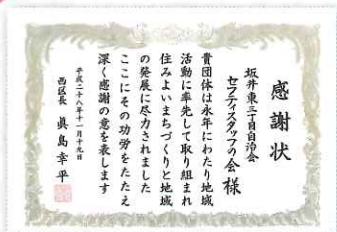 感謝状
坂井東三丁目自治会
セーフティスタッフの会 様
貴団体は永年にわたり地域
活動に率先して取り組まれ
住みよいまちづくりと地域
の発展に尽力されました
ここにその功労をたたえ
深く感謝の意を表します
平成二十八年十一月十九日
西区長 眞島幸平